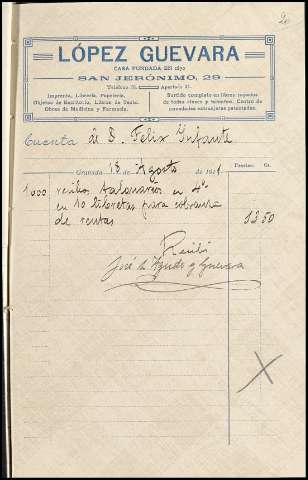 2
LÓPEZ GUEVARA
CASA FUNDADA EN 1870
SAN JERÓNIMO, 29
Teléfono 75. Apartado 31.
Imprenta, Librería, Papelería.
Objetos de Escritorio, Libros de Texto.
Obras de Medicina y Farmacia.
Surtido completo en libros rayados
de todas clases y tamaños. Centro de
novedades extranjeras patentadas.
Cuenta á D. Felix Infante
Granada 18 de Agosto de 1911 Pesetas Cs.
1000 recibos talonarios en 4º
en 10 libretas para cobranza
de rentas 13 50
Recibí
José L. y Guevara